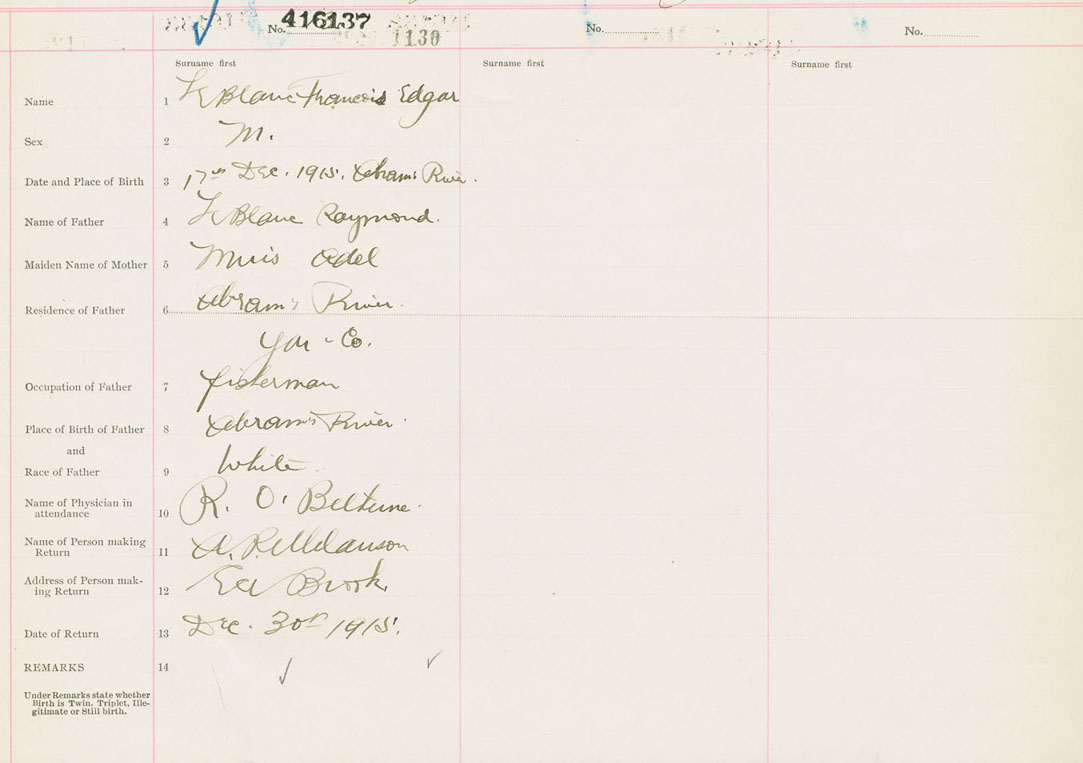 No. 416137
1130
No.
No.
Surname first
Surname first
Surname first
Name 1 Le Blanc Francois Edgar
Sex 2 M.
Date and Place of Birth 3 17th Dec. 1915. Abrams River.
Name of Father 4 Le Blanc Raymond.
Maiden Name of Mother 5 Muis Adel
Residence of Father 6 Abram's River.
Yar - Co.
Occupation of Father 7 fisherman
Place of Birth of Father 8 Abram's River.
and
Race of Father 9 White
Name of Physician in
attendance 10 R. O'
Name of Person making
Return 11 A.
Address of Person mak-
ing Return 12 Brook
Date of Return 13 Dec. 30th 1915.
REMARKS 14
Under Remarks state whether
Birth is Twin, Triplet, Ille-
gitimate or Still-birth.